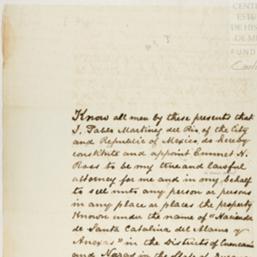 CENT
ESTU
DE HIS
DE M
FUND
Carl
Know all men by these presents that
I, Pablo Martinez del Rio of the City
and Republic of Mexico do hereby
constitute and appoint Emmet H.
Ross to be my true and lawful
attorney for me and in my behalf
to sell unto any person or persons
in any place or places the property
Known under the name of "Hacienda
de Santa Catalina del Alamo y
Anexas" in the Districts of Cuencamé
and Nazas in the State of